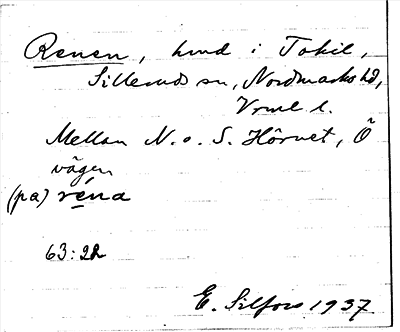 Renen, hmd i Tokil,
Silleruds sn, Nordmarks hd,
Vrml. l.
Mellan N. o. S. Hôrnet, Ö
vägen
(pa) réna
63:2
E. Silfors 1937